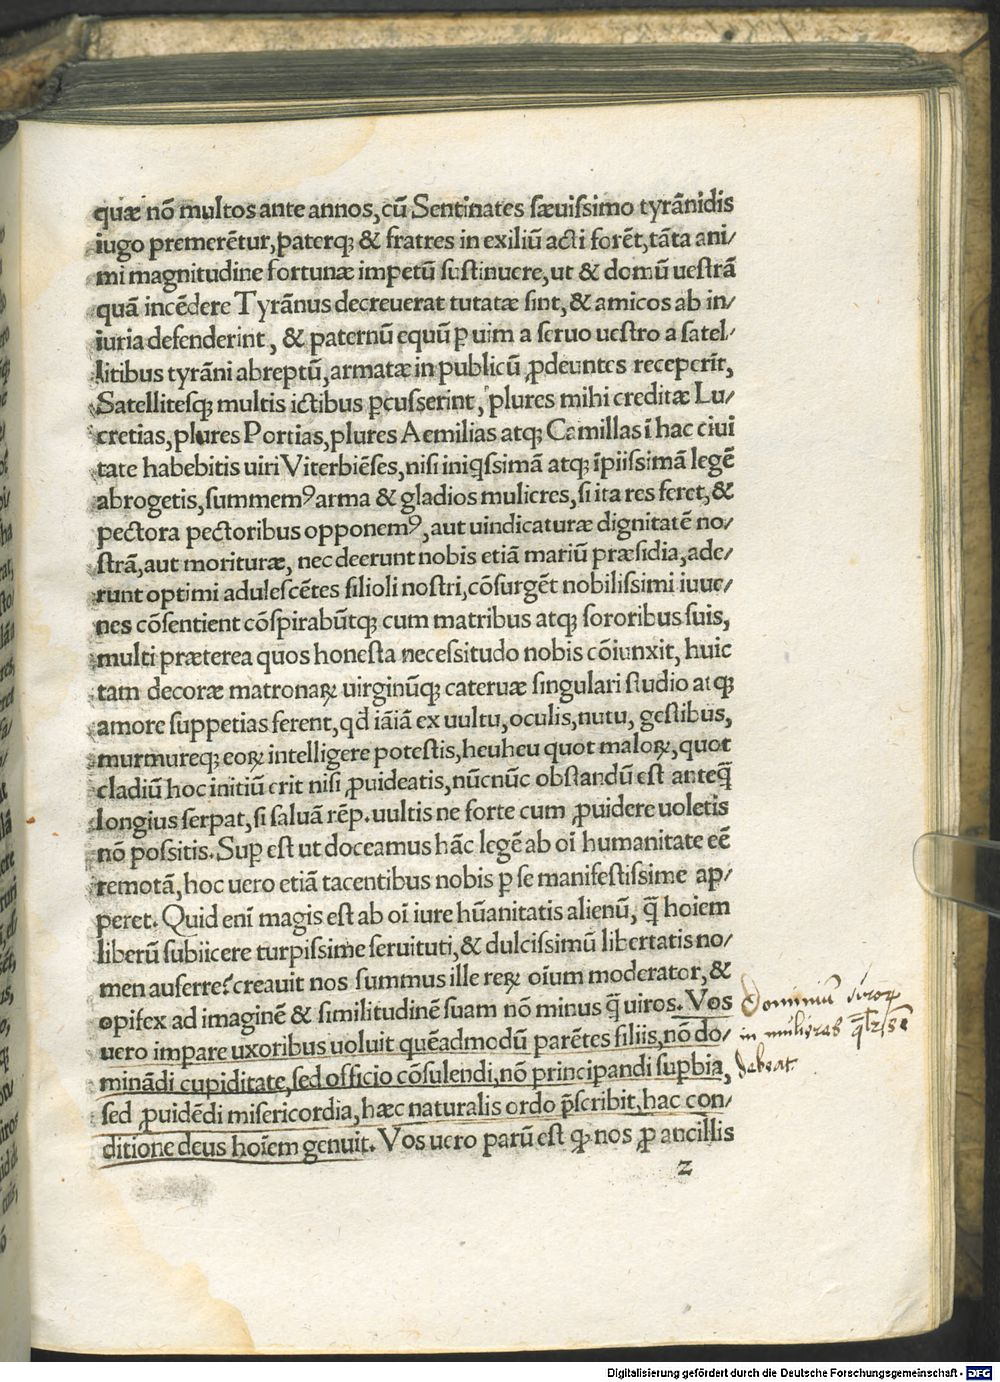 quæ nõ multos ante annos, cũ Sentinates sæuissimo tyrãnidis
iugo premerẽtur, ꝑaterqꝫ & fratres in exiliũ acti forẽt, tãta ani/
mi magnitudine fortunæ impetũ sustinuere, ut & domũ uestrã
quã incẽdere Tyrãnus decreuerat tutatæ sint, & amicos ab in/
iuria defenderint, & paternũ equũ ꝑ uim a seruo uestro a satel/
litibus tyrãni abreptũ, armatæ in publicũ ꝓdeuntes receperĩt,
Satellitesqꝫ multis ictibus ꝑcusserint, plures mihi creditæ Lu/
cretias, plures Portias, plures Aemilias atqꝫ Camillas ĩ hac ciui
tate habebitis uiri Viterbiẽses, nisi iniq̃ssimã atqꝫ ĩpiissimã legẽ
abrogetis, summemꝰ arma & gladios mulieres, si ita res feret, &
pectora pectoribus opponemꝰ, aut uindicaturæ dignitatẽ no/
strã, aut morituræ, nec deerunt nobis etiã mariũ præsidia, ade/
runt optimi adulescẽtes filioli nostri, cõsurgẽt nobilissimi iuue/
nes cõsentient cõspirabũtqꝫ cum matribus atqꝫ sororibus suis,
multi præterea quos honesta necessitudo nobis cõiunxit, huic
tam decoræ matronaꝝ uirginũqꝫ cateruæ singulari studio atqꝫ
amore suppetias ferent, qđ iãiã ex uultu, oculis, nutu, gestibus,
murmureqꝫ eoꝝ intelligere potestis, heuheu quot maloꝝ, quot
cladiũ hoc initiũ erit nisi ꝓuideatis, nũcnũc obstandũ est anteq̃
longius serpat, si saluã rẽp. uultis ne forte cum ꝓuidere uoletis
nõ possitis. Suꝑ est ut doceamus hãc legẽ ab oĩ humanitate eẽ
remotã, hoc uero etiã tacentibus nobis ꝑ se manifestissime ap/
peret. Quid enĩ magis est ab oĩ iure hũanitatis alienũ, q̃ hoiem
liberũ subiicere turpissime seruituti, & dulcissimũ libertatis no/
men auferre? creauit nos summus ille reꝝ oĩum moderator, &
opifex ad imaginẽ & similitudinẽ suam nõ minus q̃ uiros. Vos
uero impare uxoribus uoluit quẽadmodũ parẽtes filiis, nõ do/
minãdi cupiditate, sed officio cõsulendi, nõ principandi suꝑbia,
sed ꝓuidẽdi misericordia, hæc naturalis ordo p̃scribit, hac con/
ditione deus hoĩem genuit. Vos uero parũ est qꝫ nos ꝓ ancillis
z
Dominiũ viroꝝ
in mulieres
debeat
Digitalisierung gefördert durch die Deutsche Forschungsgemeinschaft - DFG